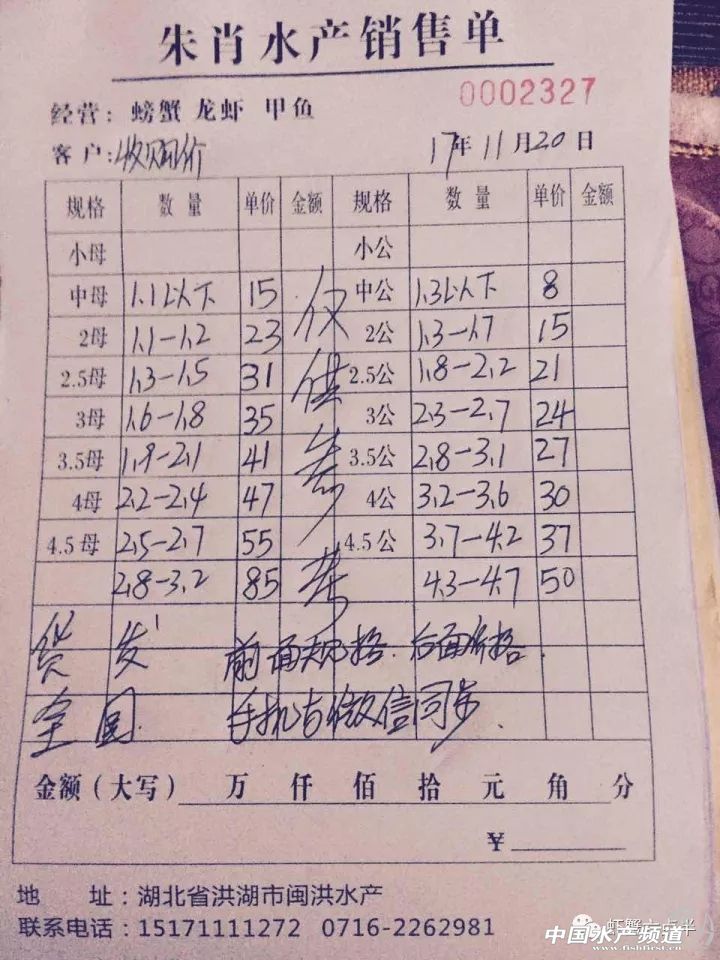 朱肖水产销售单
经营：螃蟹 龙虾 甲鱼 0002327
客户：收购价 17年11月20日
规格 数量 单价 金额 规格 数量 单价 金额
小母 小公
中母 1.1以下 15 中公 1.3以下 8
2母 1.1-1.2 23 2公 1.3-1.7 15
2.5母 1.3-1.5 31 2.5公 1.8-2.2 21
3母 1.6-1.8 35 3公 2.3-2.7 24
3.5母 1.9-2.1 41 3.5公 2.8-3.1 27
4母 2.2-2.4 47 4公 3.2-3.6 30
4.5母 2.5-2.7 55 4.5公 3.7-4.2 37
2.8-3.2 85 4.3-4.7 50
仅供参考
货发 前面规格.后面价格.
全国. 手机与微信同步.
金额（大写） 万 仟 佰 拾 元 角 分
¥
地 址：湖北省洪湖市闽洪水产
联系电话：15171111272 0716-2262981
虾蟹六点半
中国水产频道
www.fishfirst.cn